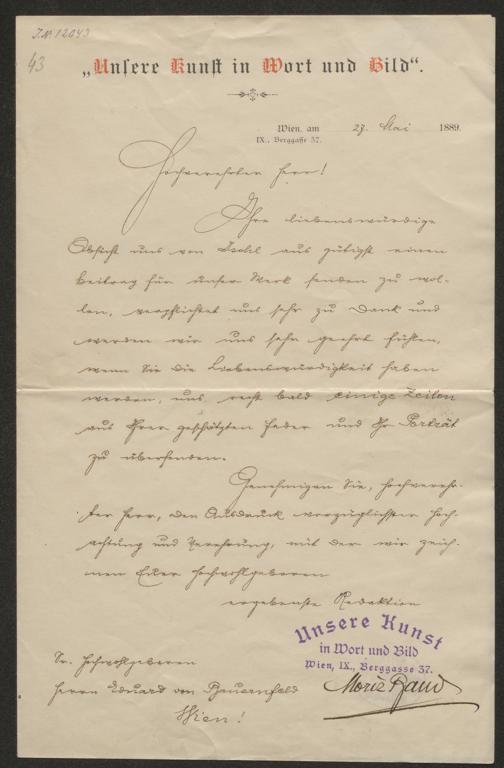 I.N. 12043
43
„Unsere Kunst in Wort und Bild“.
Wien, am 27. Mai 1889.
IX., Berggasse 37.
Hochverehrter Herr!
Ihre liebenswürdige
Absicht uns von Ischl aus gütigst einen
Beitrag für unser Werk senden zu wol-
len, verpflichtet uns sehr zu Dank und
werden wir uns sehr geehrt fühlen,
wenn Sie die Liebenswürdigkeit haben
werden, uns recht bald einige Zeilen
aus Ihrer geschätzten Feder und Ihr Porträt
zu übersenden.
Genehmigen Sie, hochverehr-
ter Herr, den Ausdruck vorzüglichster Hoch-
achtung und Verehrung, mit der wir zeich-
nen Euer Hochwohlgeboren
ergebenste Redaktion
Unsere Kunst
in Wort und Bild
Wien, IX., Berggasse 37.
Sr. Hochwohlgeboren
Herrn Eduard von Bauernfeld
Wien!